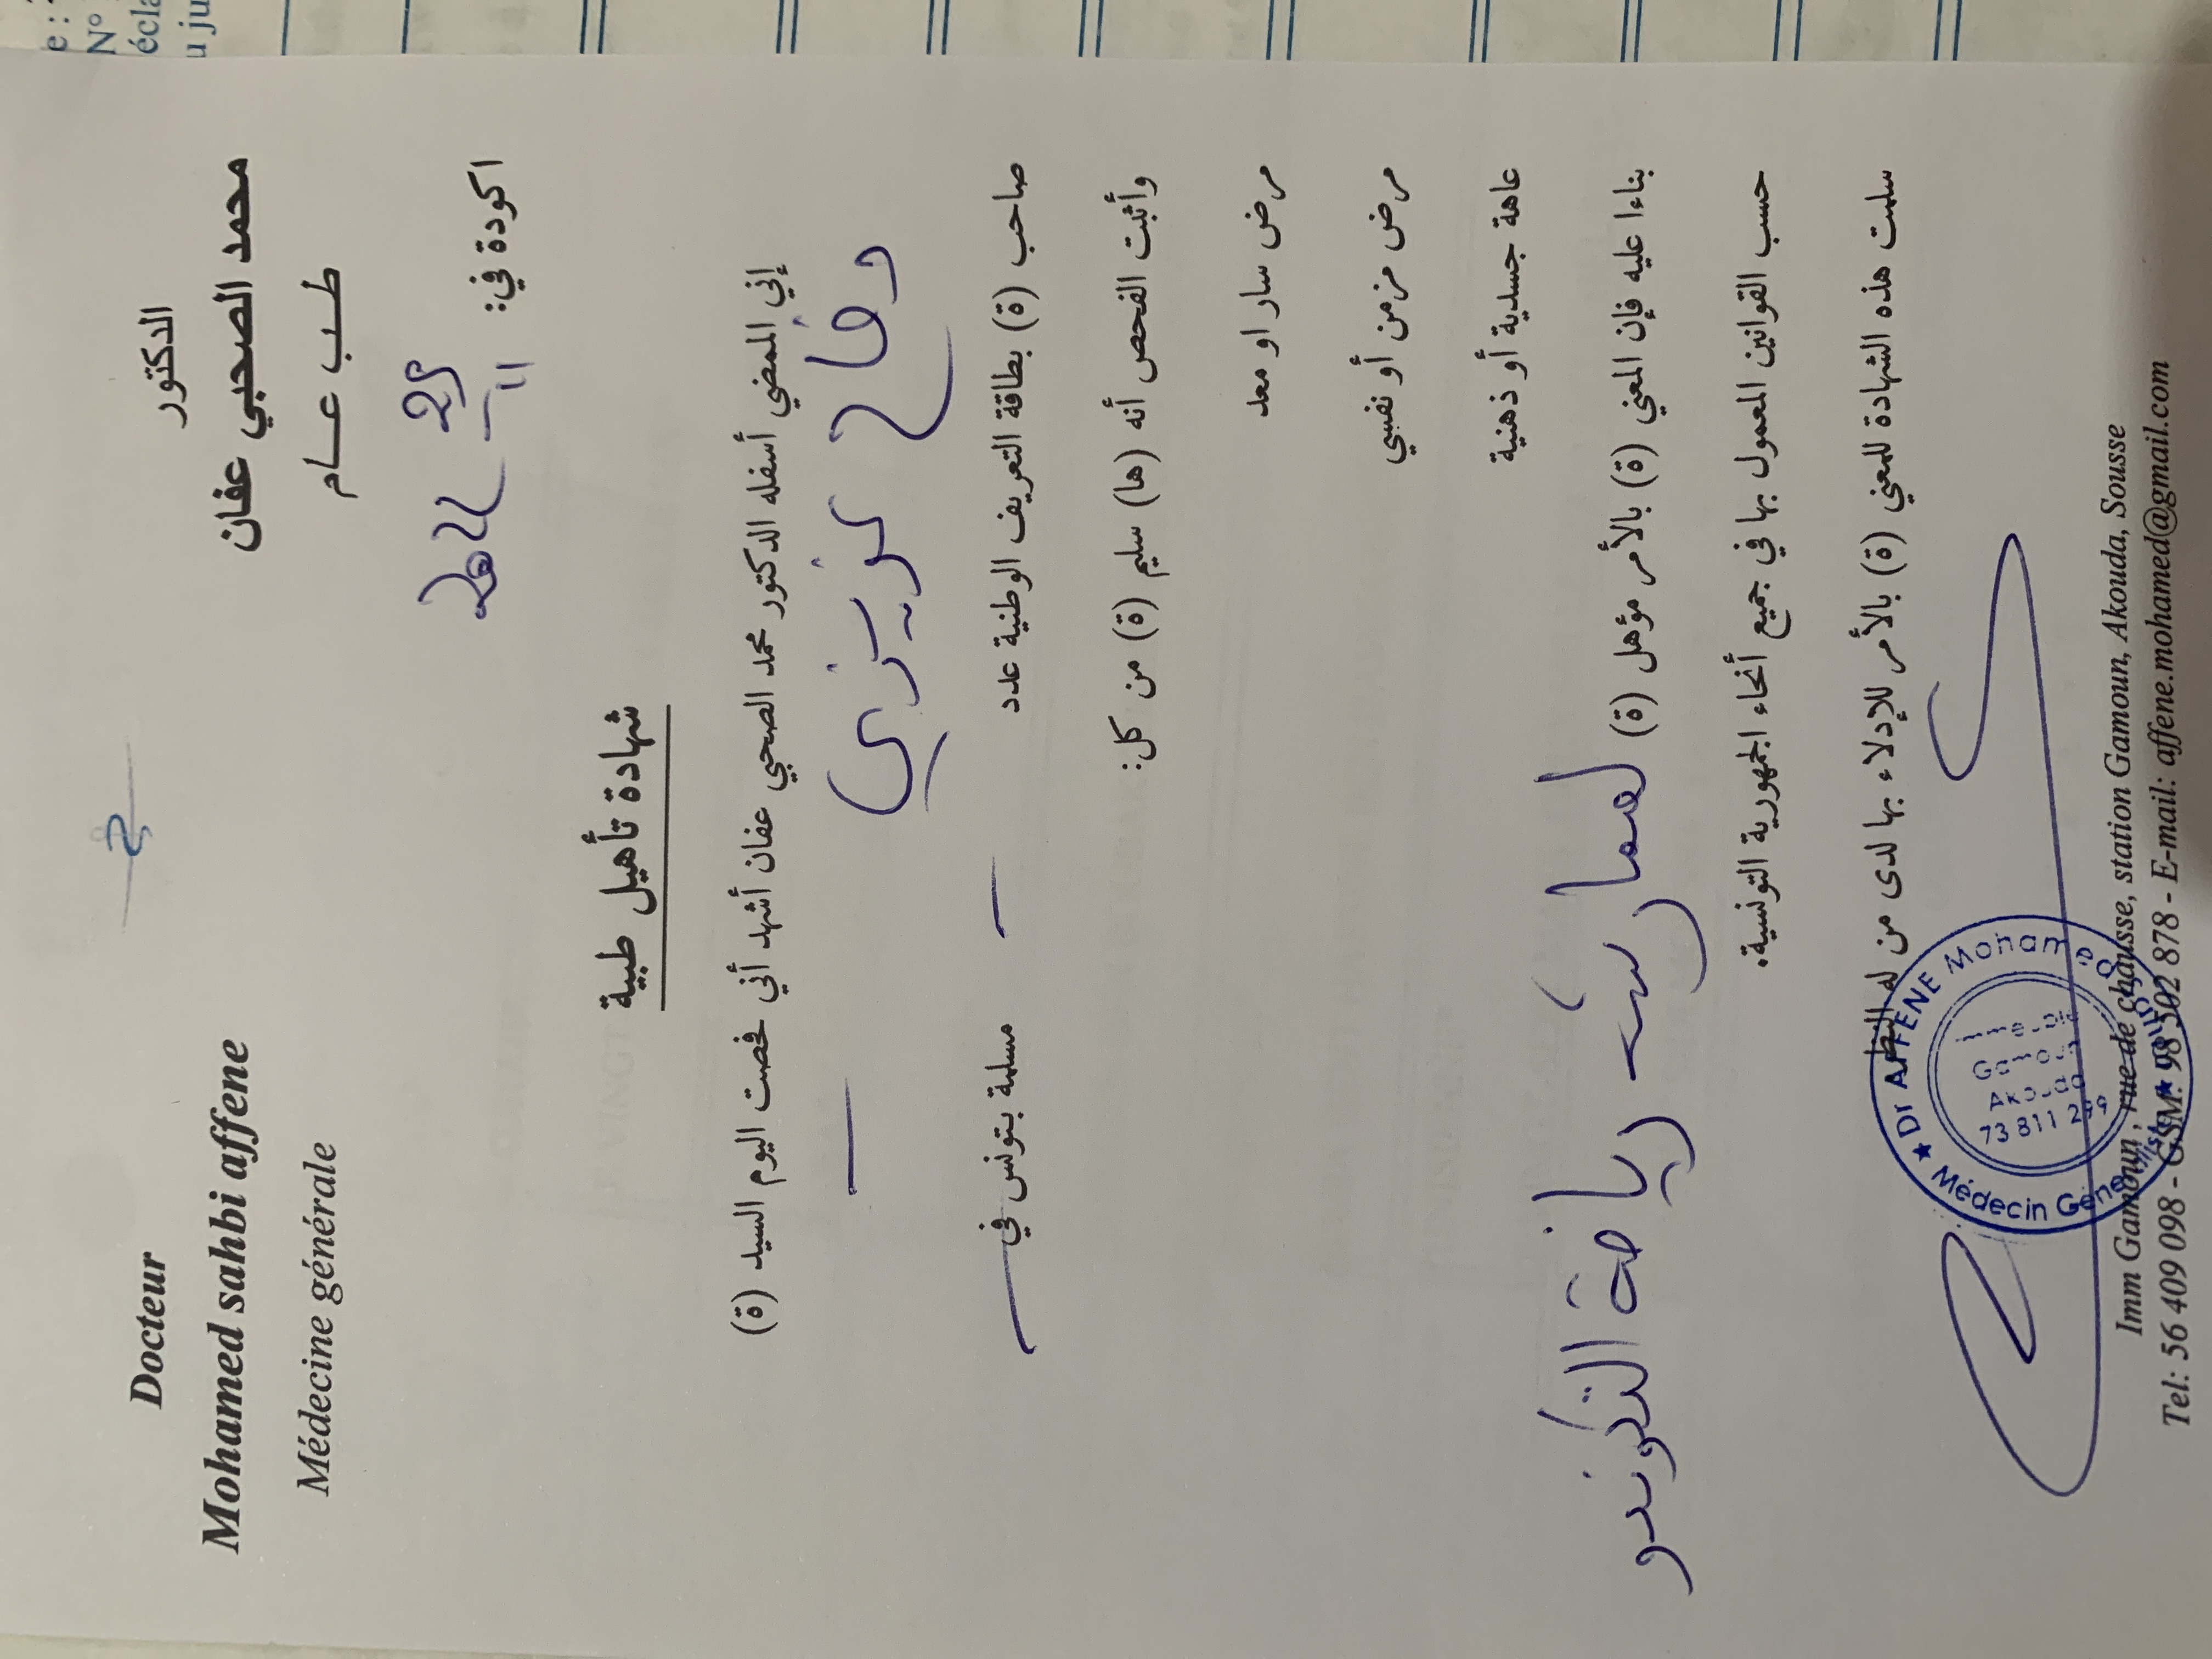 e :
N°
écla
u ju
Docteur
Mohamed sahbi affene
Médecine générale
الدكتور
محمد الصحبي عفان
طـــب عـــام
اكودة في:
شهادة تأهيل طبية
إني الممضي أسفله الدكتور محمد الصحبي عفان أشهد أني فحصت اليوم السيد (ة)
صاحب (ة) بطاقة التعريف الوطنية عدد مسلمة بتونس في
وأثبت الفحص أنه (ها) سليم (ة) من كل:
مرض سار او معد
مرض مزمن أو نفسي
عاهة جسدية أو ذهنية
بناءا عليه فإن المعني (ة) بالأمر مؤهل (ة) لممارسة رياضة التكوندو
حسب القوانين المعمول بها في جميع أنحاء الجمهورية التونسية.
سلمت هذه الشهادة للمعني (ة) بالأمر للإدلاء بها لدى من له النظر
Dr AFFENE Mohamed
Immeuble
Gamoun
Akouda
73 811 299
Médecin Géné
Imm Gamoun, rue de chausse, station Gamoun, Akouda, Sousse
Tel: 56 409 098 - GSM: 98 502 878 - E-mail: affene.mohamed@gmail.com